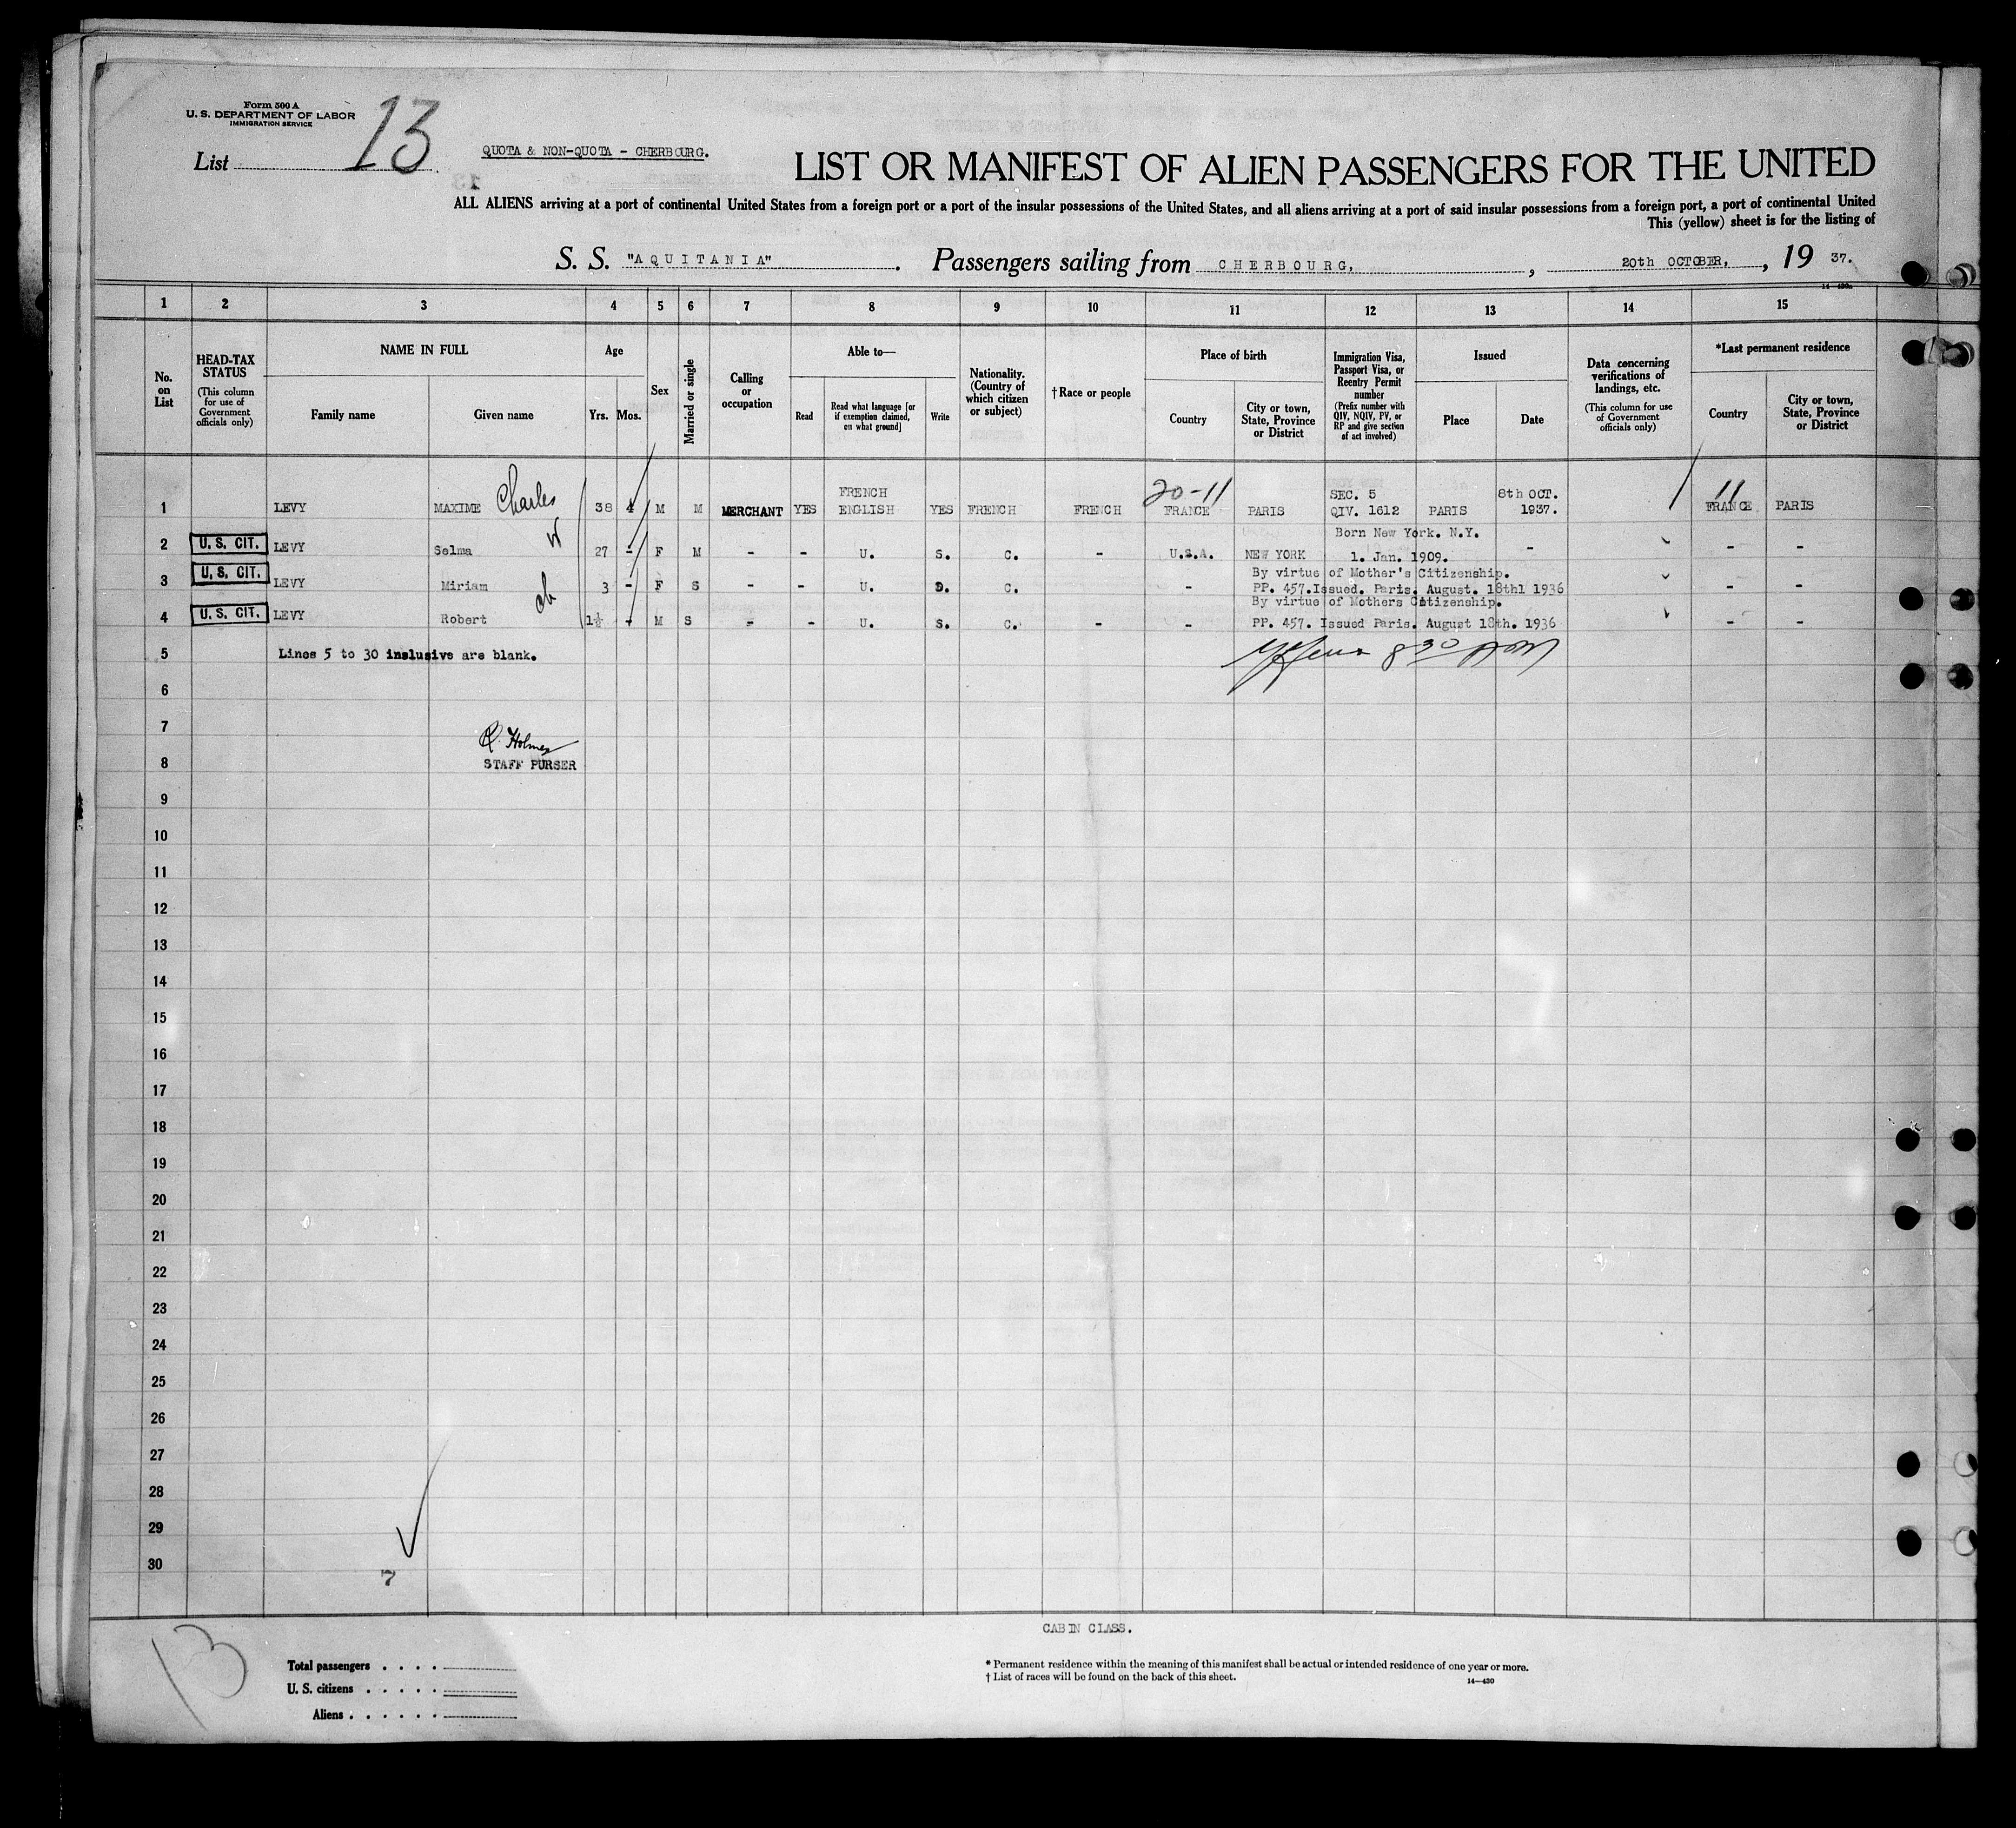 Form 500 A
U. S. DEPARTMENT OF LABOR
IMMIGRATION SERVICE
List 13
QUOTA & NON-QUOTA - CHERBOURG.
LIST OR MANIFEST OF ALIEN PASSENGERS FOR THE UNITED
ALL ALIENS arriving at a port of continental United States from a foreign port or a port of the insular possessions of the United States, and all aliens arriving at a port of said insular possessions from a foreign port, a port of continental United
This (yellow) sheet is for the listing of
S. S. "AQUITANIA". Passengers sailing from CHERBOURG, , 20th OCTOBER, , 19 37.
14—430
1 2 3 4 5 6 7 8 9 10 11 12 13 14 15
No. on List
HEAD-TAX STATUS
(This column for use of Government officials only)
NAME IN FULL
Family name Given name
Age
Yrs. Mos.
Sex
Married or single
Calling or occupation
Able to—
Read
Read what language [or if exemption claimed, on what ground]
Write
Nationality. (Country of which citizen or subject)
†Race or people
Place of birth
Country
City or town, State, Province or District
Immigration Visa, Passport Visa, or Reentry Permit number
(Prefix number with QIV, NQIV, PV, or RP and give section of act involved)
Issued
Place Date
Data concerning verifications of landings, etc.
(This column for use of Government officials only)
*Last permanent residence
Country
City or town, State, Province or District
FRENCH 20-11 SEC. 5 8th OCT. 11
1 LEVY MAXIME Charles 38 4 M M MERCHANT YES ENGLISH YES FRENCH FRENCH FRANCE PARIS QIV. 1612 PARIS 1937. FRANCE PARIS
Born New York. N.Y.
2 U. S. CIT. LEVY Selma 27 - F M - - U. S. C. - U.S.A. NEW YORK 1. Jan. 1909. - - -
By virtue of Mother's Citizenship.
3 U. S. CIT. LEVY Miriam 3 - F S - - U. S. C. - PP. 457.Issued. Paris. August. 18th1 1936 - -
By virtue of Mothers Citizenship.
4 U. S. CIT. LEVY Robert 1½ - M S - - U. S. C. - - PP. 457. Issued Paris. August 18th. 1936 - -
5 Lines 5 to 30 inslusive are blank.
8 30
6
7
R. Holmes
8 STAFF PURSER
9
10
11
12
13
14
15
16
17
18
19
20
21
22
23
24
25
26
27
28
29
30
7
CABIN CLASS.
13
Total passengers . . . .
U. S. citizens . . . . .
Aliens . . . . . .
* Permanent residence within the meaning of this manifest shall be actual or intended residence of one year or more.
† List of races will be found on the back of this sheet.
14—430